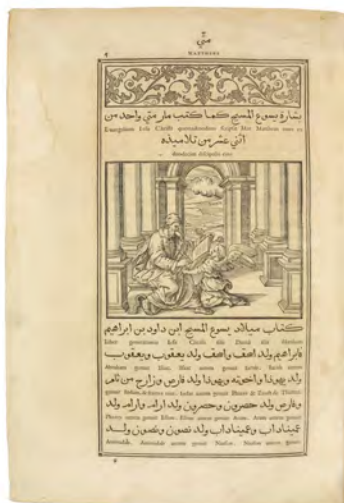 متى
4
MATTHEVS
بشارة يسوع المسيح كما كتب مار متى واحد من
Euangelium Iesu Christi quemadmodum scripsit Mar Mattheus vnus ex
اثني عشر من تلاميذه
duodecim discipulis eius
كتاب ميلاد يسوع المسيح ابن داود بن ابراهيم
Liber generationis Iesu Christi filii David filii Abraham
فابراهيم ولد اسحق واسحق ولد يعقوب ويعقوب
Abraham genuit Isaac. Isaac autem genuit Iacob. Iacob autem
ولد يهوذا واخوته ويهوذا ولد فارص وزارح من تامر
genuit Iudam, & fratres eius. Iudas autem genuit Phares & Zarah de Thamar.
وفارص ولد حصرون وحصرون ولد ارام وارام ولد
Phares autem genuit Esron. Esron autem genuit Aram. Aram autem genuit
عميناداب وعميناداب ولد نصون ونصون ولد
Aminadab. Aminadab autem genuit Naasson. Naasson autem genuit